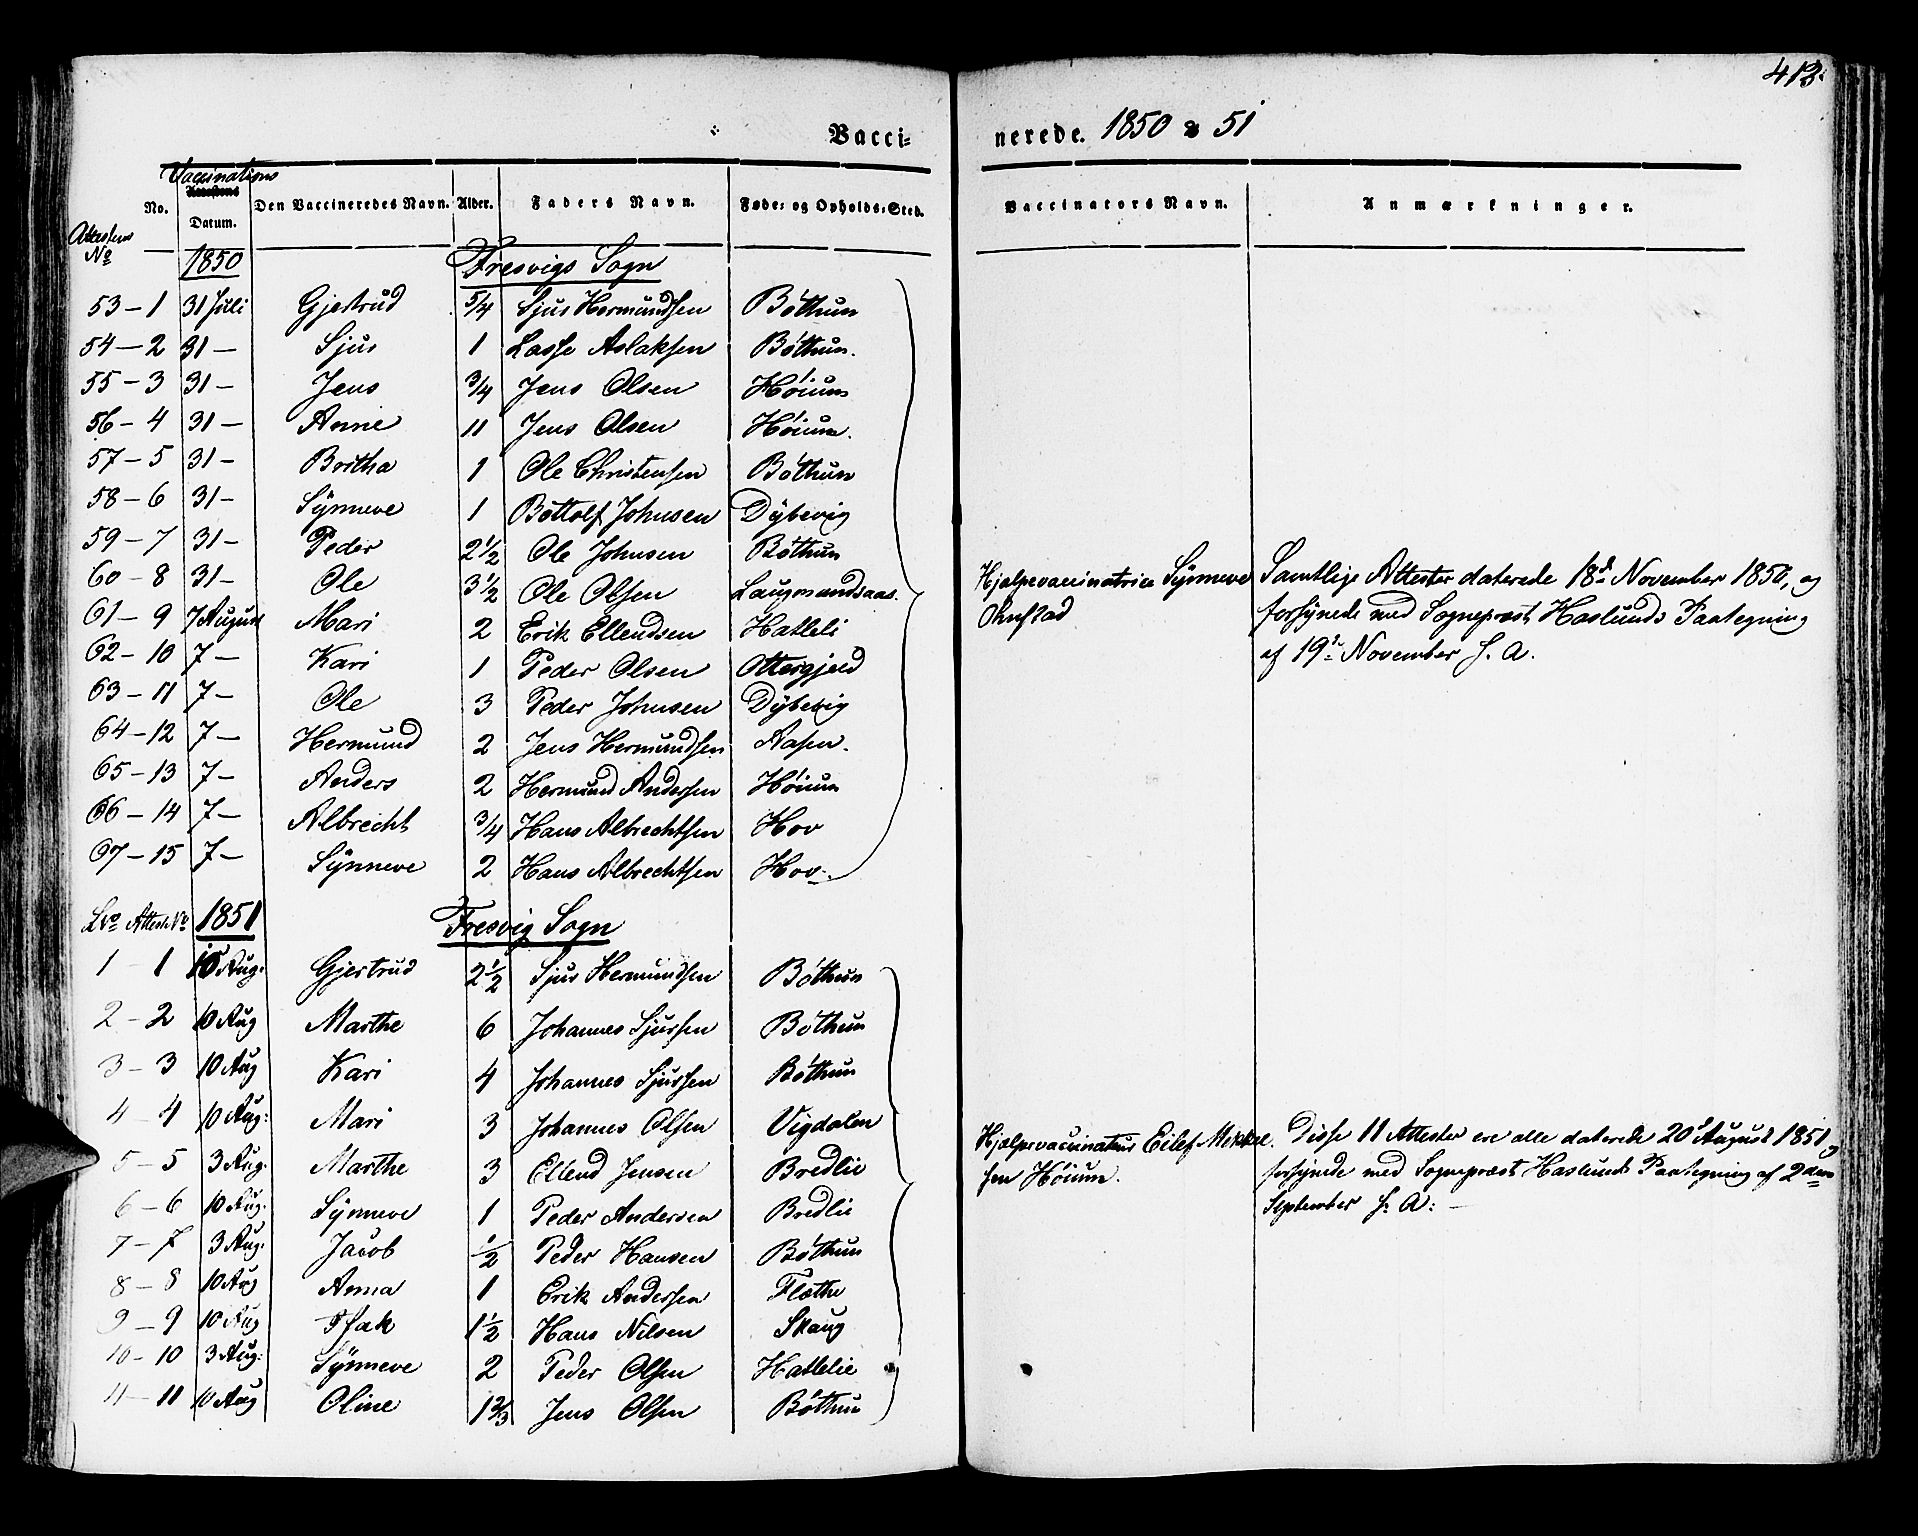 413.
Vaccinerede. 1850 & 51
Vaccinations
Attestens No
No. Attestens Datum. Den Vaccineredes Navn. Alder. Faders Navn. Føde- og Opholds-Sted. Vaccinators Navn. Anmærkninger.
1850 Fresvigs Sogn
53 - 1 31 Juli Gjertrud 5/4 Sjus Hermundsen Bøthun
54 - 2 31 - Sjus 1 Lasse Aslaksen Bøthun.
55 - 3 31 - Jens 3/4 Jens Olsen Høium
56 - 4 31 - Anne 11 Jens Olsen Høium.
57 - 5 31 - Britha 1 Ole Christensen Bøthun
58 - 6 31 - Sÿnneve 1 Bottolf Johnsen Dÿbevig
59 - 7 31 - Peder 2 1/2 Ole Johnsen Bøthun
60 - 8 31 - Ole 3 1/2 Ole Olsen Laugmandsaas.
61 - 9 7 August Mari 2 Erik Ellendsen Hatleli
62 - 10 7 - Kari 1 Peder Olsen Ottergjeld
63 - 11 7 - Ole 3 Peder Johnsen Dÿbevig
64 - 12 7 - Hermund 2 Jens Hermundsen Aasen.
65 - 13 7 - Anders 2 Hermund Andersen Høium
66 - 14 7 - Albrecht 3/4 Hans Albrechtsen Hov
67 - 15 7 - Sÿnneve 2 Hans Albrechtsen Hov.
Hjælpevaccinatrice Sÿnneve Ohnstad
Samtlige Attester daterede 18d November 1850, og
forsÿnede med Sognepræst Haslunds Paategning
af 19d November s. A.
Lno Attest No 1851 Fresvig Sogn
1 - 1 10 Aug. Gjertrud 2 1/2 Sjus Hermundsen Bøthun
2 - 2 10 Aug Marthe 6 Johannes Sjursen Bøthun
3 - 3 10 Aug Kari 4 Johannes Sjursen Bøthun
4 - 4 10 Aug: Mari 3 Johannes Olsen Vigdalen
5 - 5 3 Aug. Marthe 3 Ellend Jensen Bredlie
6 - 6 10 Aug. Sÿnneve 1 Peder Andersen Bredlie
7 - 7 3 Aug. Jacob 1/2 Peder Hansen Bøthun
8 - 8 10 Aug Anna 1 Erik Andersen Fløthe
9 - 9 10 Aug Isak 1 1/2 Hans Nilsen Skaug
10 - 10 3 Aug: Sÿnneve 2 Peder Olsen Hatlelie
11 - 11 10 Aug Oline 1 2/3 Jens Olsen Bøthun
Hjælpevaccinateur Eilef Mikkelsen Høium.
Disse 11 Attester ere alle daterede 20d August 1851, og
forsÿnede med Sognepræst Haslunds Paategning af 2den
September s. A: -